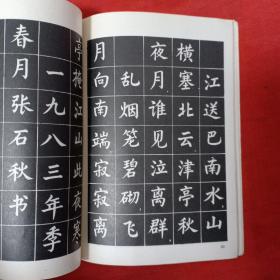 江送巴南水，山
横塞北云。津亭秋
夜月，谁见泣离群。
乱烟笼碧砌，飞
月向南端。寂寂离
亭掩，江山此夜寒。
一九八三年季
春月张石秋书